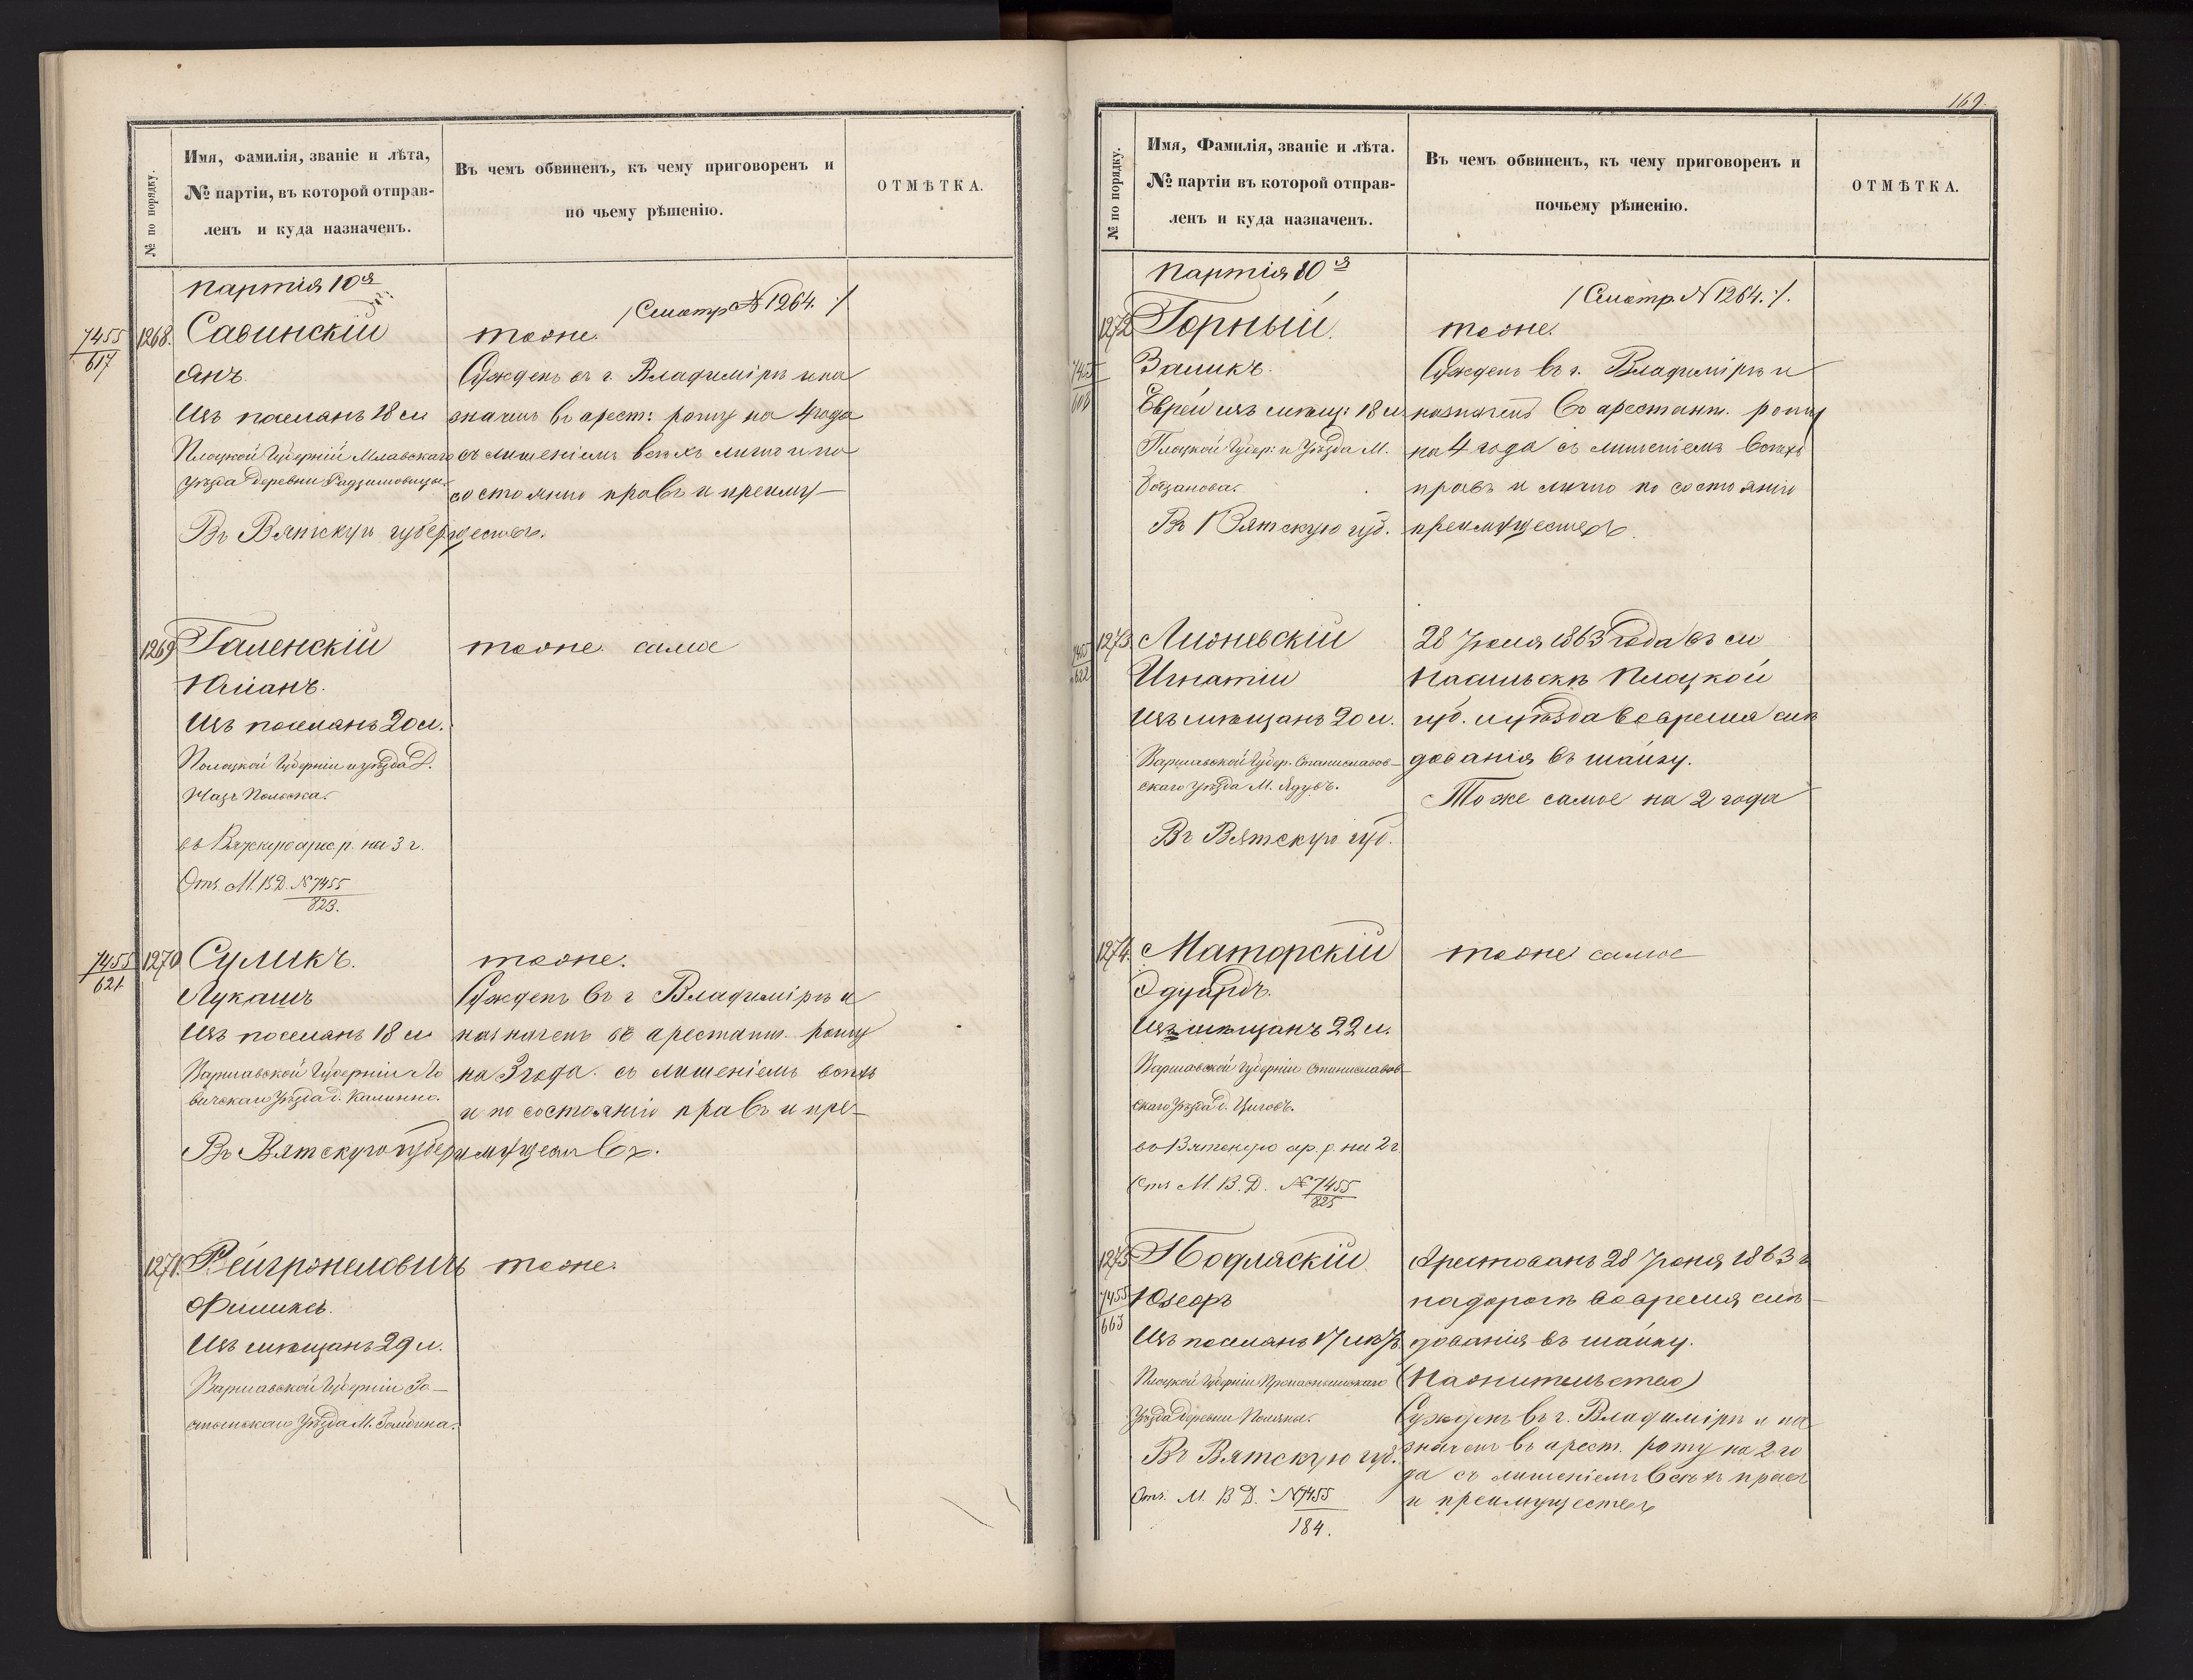 № по порядку.
Имя, фамилія, званіе и лѣта,
№ партіи, въ которой отправ-
ленъ и куда назначенъ.
Въ чемъ обвиненъ, къ чему приговоренъ и
по чьему рѣшенію.
ОТМѢТКА.
партія 10я
/Смотр. № 1264. :/
7455
617
1268.
Савинскій
Янъ.
Изъ поселянъ 18 л
Плоцкой Губерній Млавскаго
уѣзда деревни
Въ Вятскую губер
тоже.
Сужденъ въ г. Владимірѣ и на
значенъ въ арест: роту на 4 года
съ лишеніемъ всѣхъ лично и по
состоянію правъ и преиму-
ществъ.
1269
Галенскій
Юліанъ.
Изъ поселянъ 20 л.
Полоцкой Губерніи и уѣзда Д.
въ Вятскую арес р. на 3 г.
Отъ М. В. Д. № 7455
823.
тоже самое
7455
621
1270
Суликъ.
Лукашъ
Изъ поселянъ 18 л
Варшавской Губерніи Ло
вичскаго Уѣзда д. Калинно.
Въ Вятскую губер
тоже.
Сужденъ въ г Владимірѣ и
назначенъ въ арестант. роту
на 3 года. съ лишеніемъ всѣхъ
и по состоянію правъ и пре-
имуществъ.
1271.
Феликсъ.
Изъ мѣщанъ 29 л.
Варшавской Губерніи Го-
стынскаго Уѣзда М.
тоже.
169.
№ по порядку.
Имя, Фамилія, званіе и лѣта.
№ партіи въ которой отправ-
ленъ и куда назначенъ.
Въ чемъ обвиненъ, къ чему приговоренъ и
почьему рѣшенію.
ОТМѢТКА.
партія 10я
/Смотр. № 1264. :/.
1272
7455
Горный.
Заликъ.
Еврей изъ мѣщ: 18 л
Плоцкой Губер: и Уѣзда М.
Въ Вятскую губ.
тоже.
Сужденъ въ г. Владимірѣ и
назначенъ въ арестант. роту
на 4 года съ лишеніемъ всѣхъ
правъ и лично по состоянію
преимуществъ.
7455
622
1273
Лисневскій
Игнатій
Изъ мѣщанъ 20 л.
Варшавской Губер. Станиславов-
скаго Уѣзда М. Ядувъ.
Въ Вятскую губ.
28 Іюня 1863 года въ м
Насильскѣ Плоцкой
губ. и уѣзда во время слѣ
дованія въ шайку.
Тоже самое на 2 года
1274.
Маторскій
Эдуардъ.
Изъ мѣщанъ 22 л.
Варшавской Губерніи Станиславов-
скаго Уѣзда д.
въ Вятскую ар. р. на 2 г.
Отъ М. В. Д. № 7455
825
тоже самое
1275
7455
663
Подляскій
Юзефъ
Изъ поселянъ 17 лѣтъ.
Плоцкой Губерніи Праснышскаго
Уѣзда деревни
Въ Вятскую губ.
Отъ. М. В. Д. № 7455
184.
Арестованъ 28 Іюня 1863 г
на дорогѣ во время слѣ-
дованія въ шайку.
Сужденъ въ г. Владимірѣ и на
значенъ въ арест. роту на 2 го
да съ лишеніемъ всѣхъ правъ
и преимуществъ